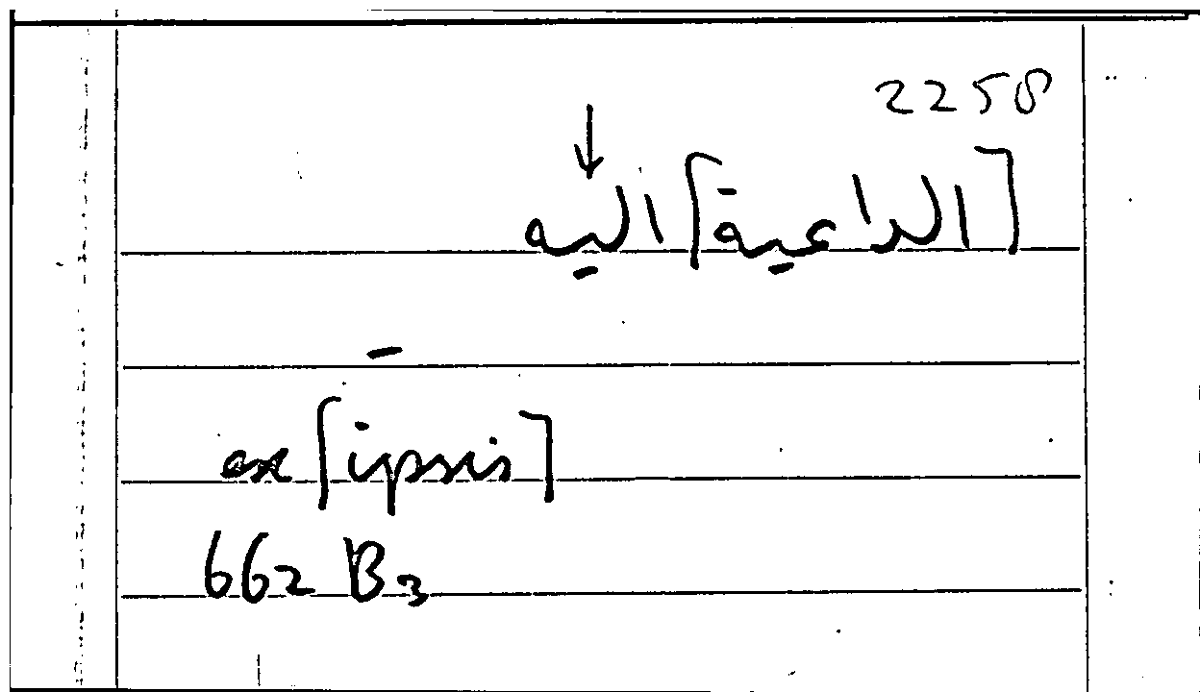 2258
[الداعية] اليه
ex [ipsis]
662 B3